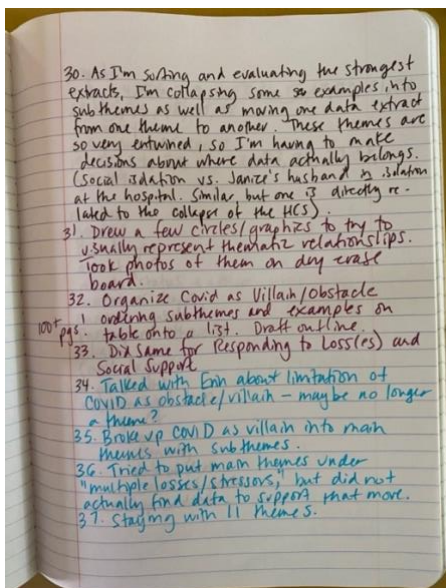 30. As I'm sorting and evaluating the strongest
extracts, I'm collapsing some examples into
subthemes as well as moving one data extract
from one theme to another. These themes are
so very entwined, so I'm having to make
decisions about where data actually belongs.
(Social isolation vs. Janize's husband in isolation
at the hospital. Similar, but one is directly re-
lated to the collapse of the HCS).
31. Drew a few circles/graphics to try to
visually represent thematic relationships.
Took photos of them on dry erase
board.
32. Organize Covid as Villain/Obstacle
100+ pgs. ordering subthemes and examples on
table onto a list. Draft outline.
33. Did same for Responding to Loss(es) and
Social Support
34. Talked with Erin about limitation of
COVID as obstacle/villain – maybe no longer
a theme?
35. Broke up COVID as villain into main
themes with subthemes.
36. Tried to put main themes under
"multiple losses/stressors," but did not
actually find data to support that move.
37. Staying with 11 themes.